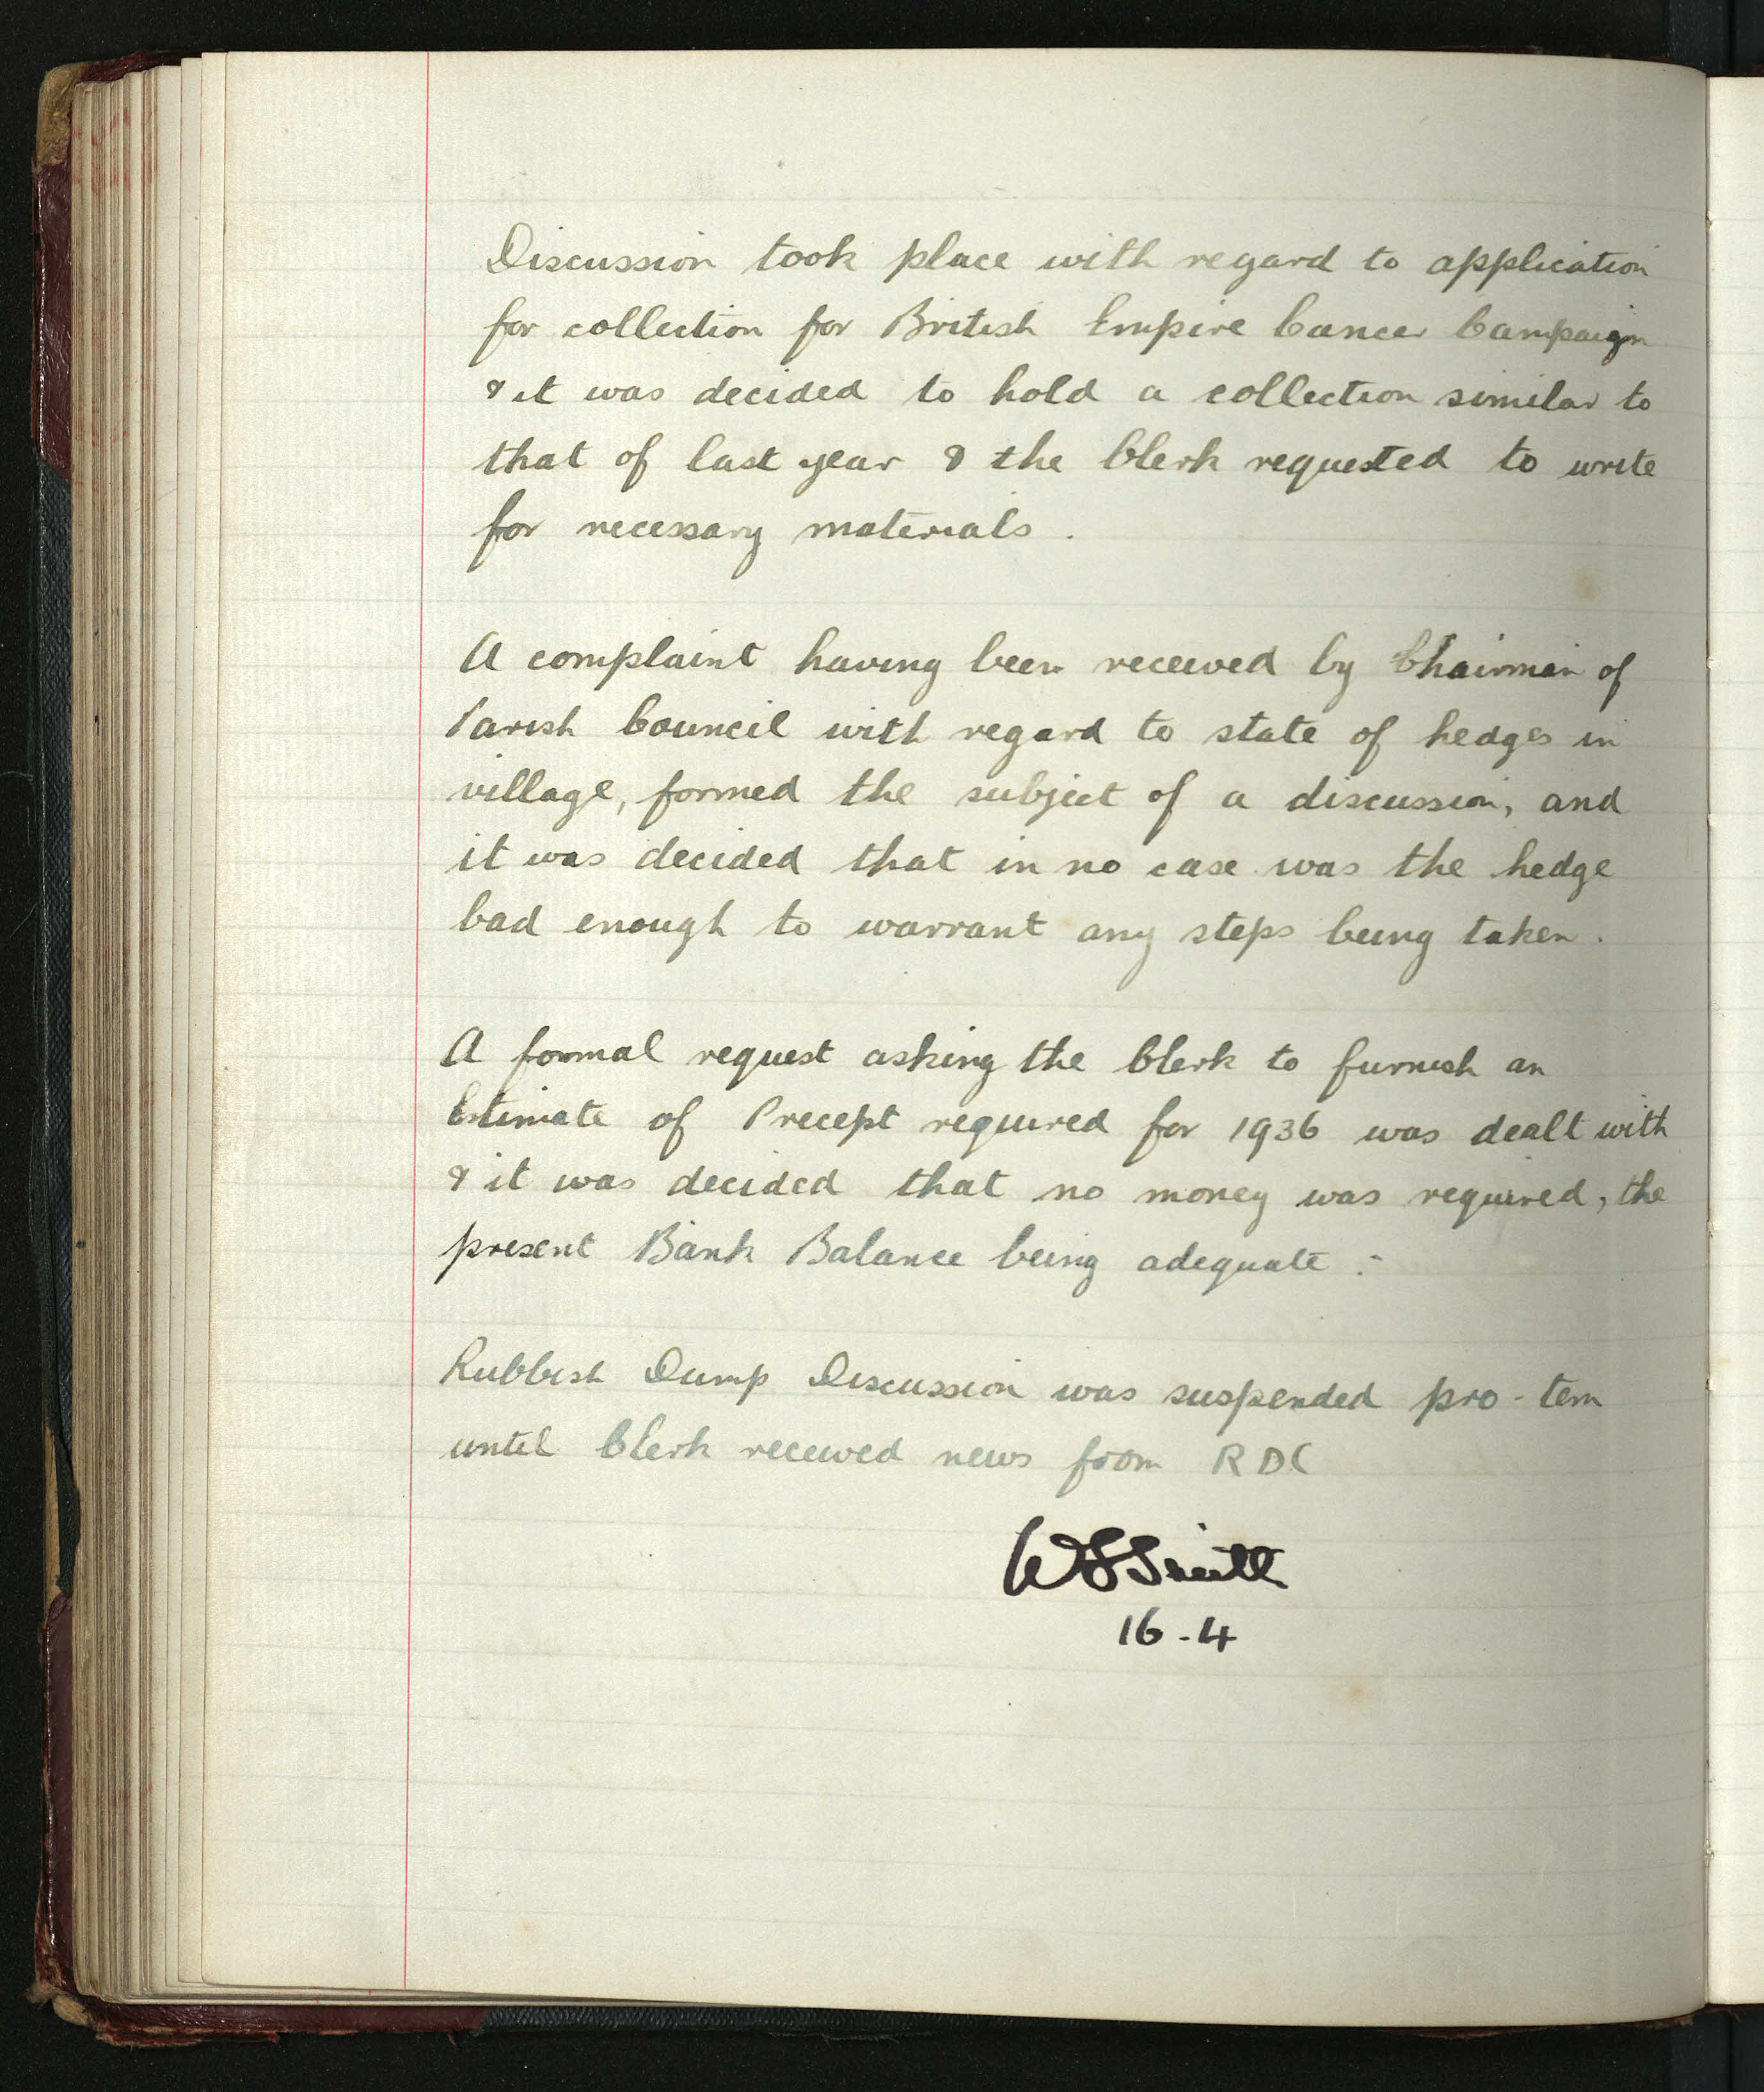 Discussion took place with regard to application
for collection for British Empire Cancer Campaign
& it was decided to hold a collection similar to
that of last year & the Clerk requested to write
for necessary materials .
A complaint having been received by Chairman of
Parish Council with regard to state of hedges in
village, formed the subject of a discussion, and
it was decided that in no case was the hedge
bad enough to warrant any steps being taken .
A formal request asking the Clerk to furnish an
Estimate of Precept required for 1936 was dealt with
& it was decided that no money was required, the
present Bank Balance being adequate :-
Rubbish Dump Discussion was suspended pro-tem
until Clerk received news from RDC
WSSmith
16-4